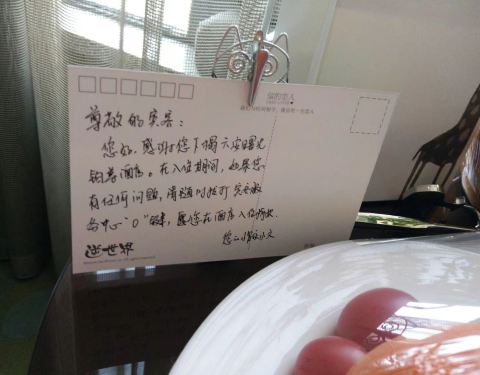 尊敬的宾客：
您好，感谢您下榻六安曙光
铂尊酒店。在入住期间，如果您
有任何问题，请随时拨打宾客服
务中心“0”键，愿您在酒店入住愉快.
逆世界